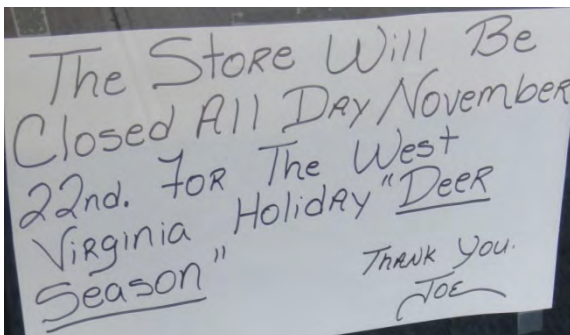 The Store Will Be
Closed All Day November
22nd. For The West
Virginia Holiday "Deer
Season"
Thank You.
Joe